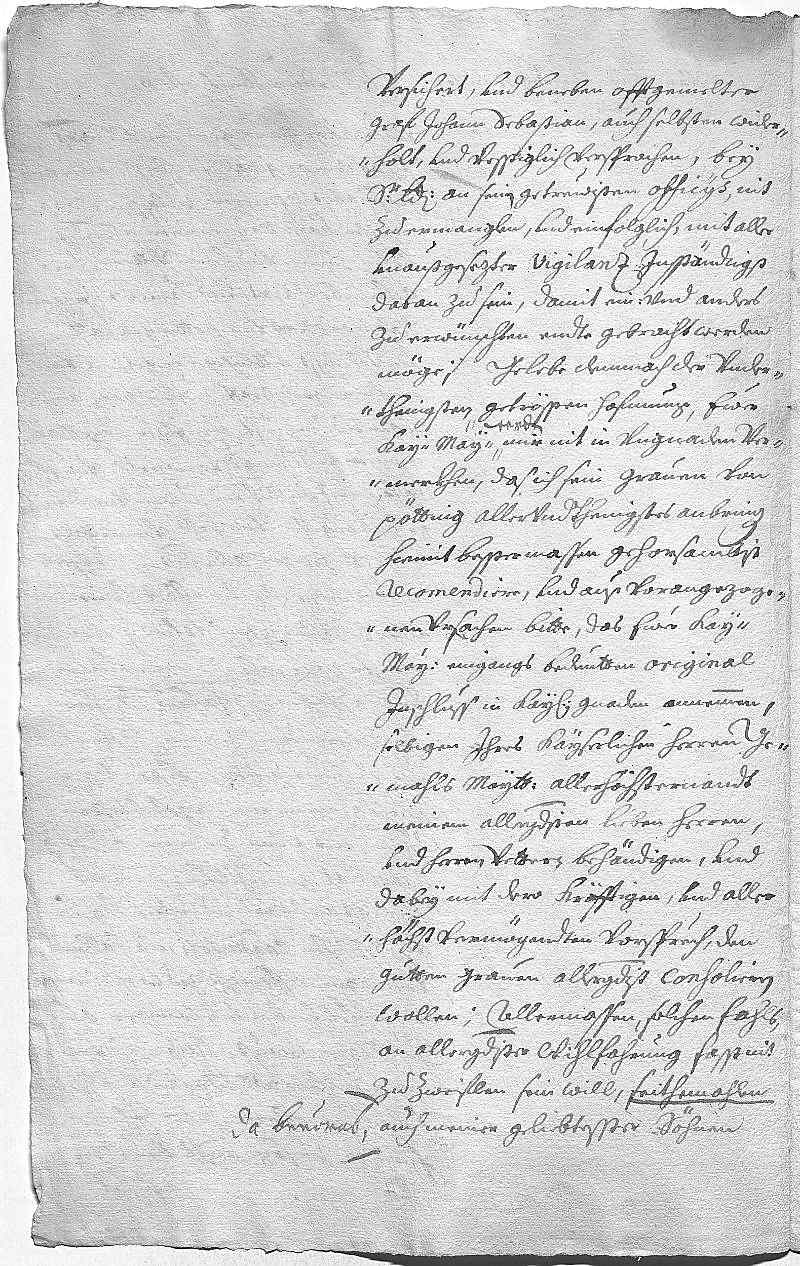 versichert, und beneben offtgemelter
Graf Johann Sebastian, auch selbsten wider-
"holt, und vesstiglich versprochen, bey
Sr: Ld: an sein getreuisten officijs, nit
zu ermanglen, und einfolglich, mit aller
unaußgesezter Vigilanz Inständigst
daran zu sein, damit ein: und anders
zu erwünschten endte gebracht werden
möge; Gelebe demnach der Under-"
"thenigsten getrösten hofnung, Eür
Kay: May: werde mir nit in Ungnaden ver-"
"merkhen, das ich sein Grauen von
Pötting allerundthenigstes anbring
hiemit bessermassen gehorsambist
Recomendiere, und auß vorangezoge-"
"nen Ursachen bitte, das Eür Kay:
May: eingangs bedeutten original
Inschluss in Kayl: gnaden annemen,
selbigen Ihres Kayserlichen herren Ge-"
"mahls Maytt: allerhöchsternandt
meinem allergdisten lieben herren,
und herren Vettern behändigen, und
dabey mit dero Kräfftigen, und aller
"höchst vermögendten Vorspruch, den
gutten Grauen allergdist consolieren
wollen; Allermassen, solchen fahls,
an allergdister Wihlfahrung fasst nit
zu zweiflen sein will, seithemahlen
da beuorab, auch meiner geliebtesster Söhnen